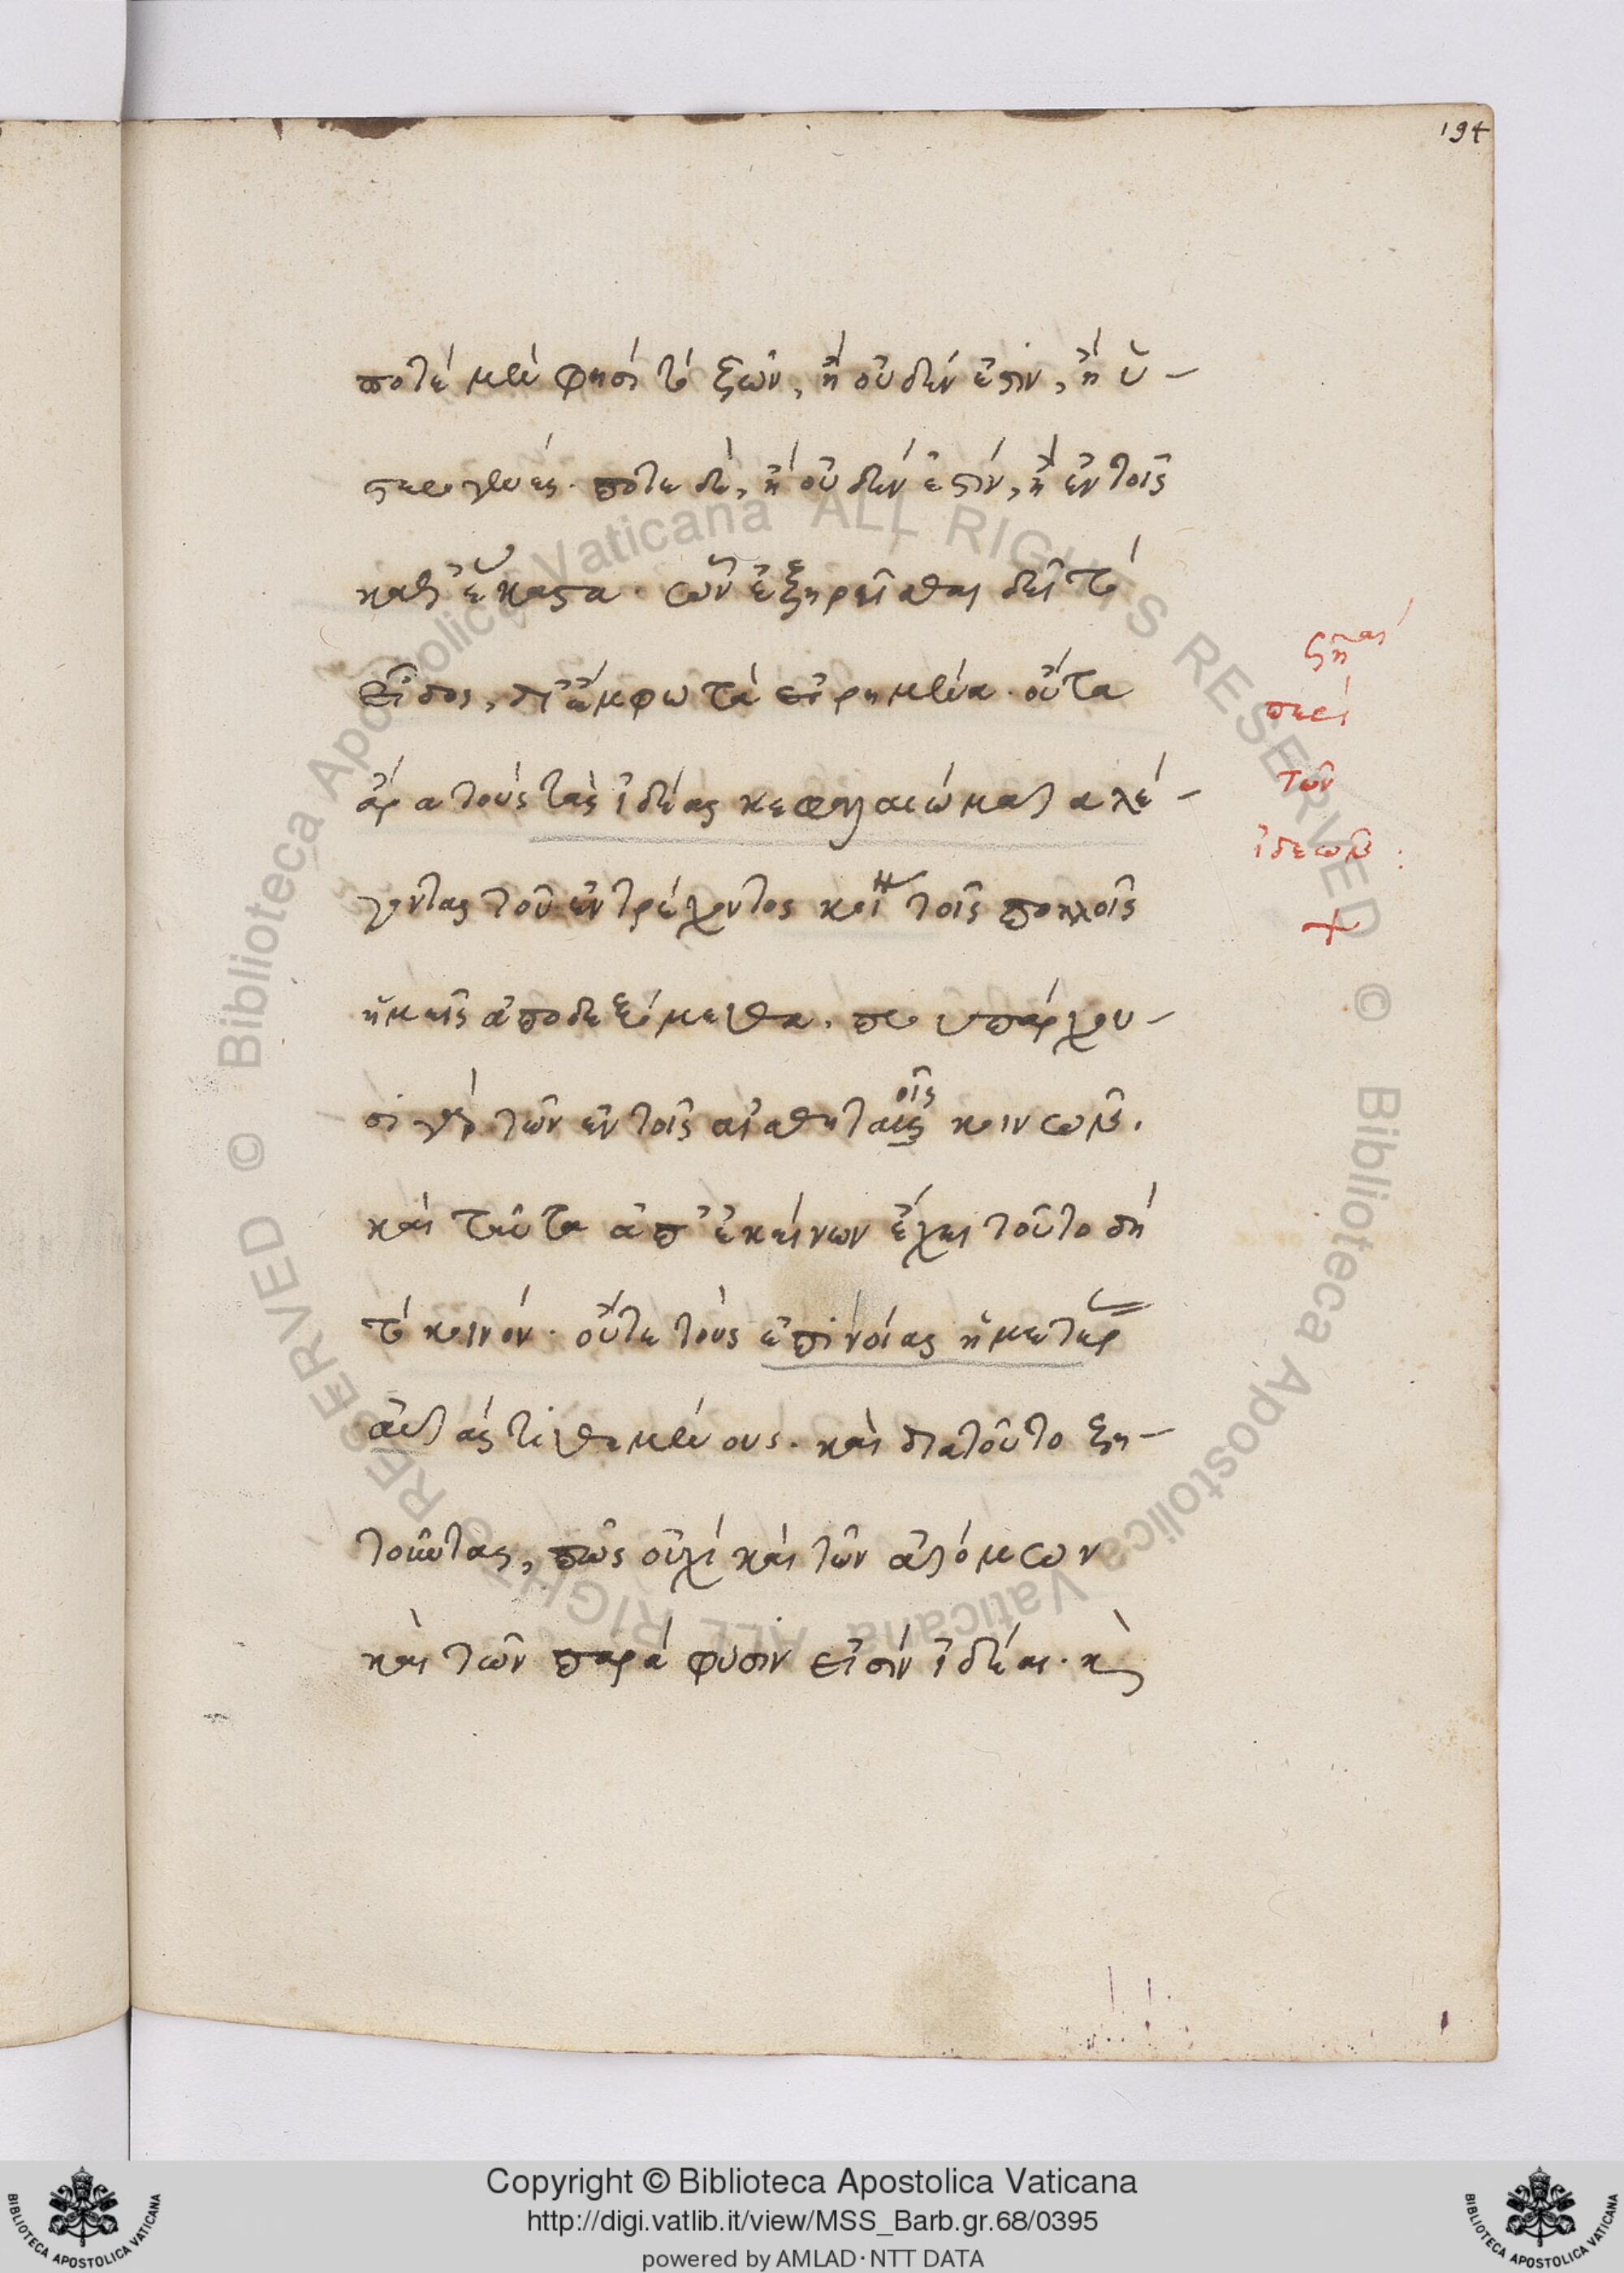 194
ποτὲ μέν φησι τὸ ζῶν, ἢ οὐδέν ἐστιν, ἢ ὑ-
στερογενές. ποτὲ δὲ, ἢ οὐδέν ἐστίν, ἢ ἐν τοῖς
καθ' ἕκαστα. ὧν ἐξηρεῖσθαι δεῖ τὸ
εἶδος, δι' ἄμφω τὰ εἰρημένα. οὔτα
ἄρα τοὺς τὰς ἰδέας κεφαλαιώματα λέ-
γοντας τοῦ ἐντρέχοντος κοινοῦ τοῖς πολλοῖς
ἡμεῖς ἀποδεξόμεθα. προυπάρχου-
σι γὰρ τῶν ἐν τοῖς αἰσθηταῖς οῖς κοινῶν.
καὶ ταῦτα ἀπ' ἐκείνων ἔχει τοῦτο δὴ
τὸ κοινόν. οὔτε τοὺς ἐπινοίας ἡμετέρας
αὐτάς τιθεμένους. καὶ διατοῦτο ζη-
τοῦντας, πῶς οὐχὶ καὶ τῶν ἀτόμων
καὶ τῶν παρὰ φύσιν εἰσὶν ἰδέαι. κὶ
περὶ
τῶν
ἰδεῶν :
Copyright © Biblioteca Apostolica Vaticana
http://digi.vatlib.it/view/MSS_Barb.gr.68/0395
powered by AMLAD · NTT DATA
BIBLIOTECA APOSTOLICA VATICANA
BIBLIOTECA APOSTOLICA VATICANA
© Biblioteca Apostolica Vaticana ALL RIGHTS RESERVED
© Biblioteca Apostolica Vaticana ALL RIGHTS RESERVED